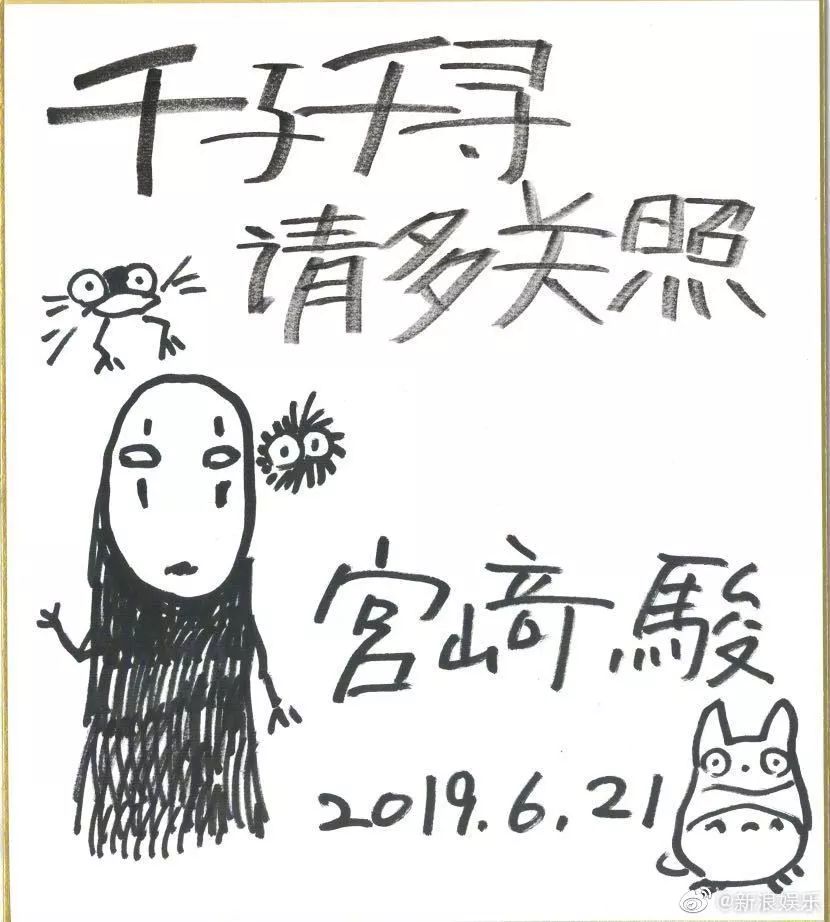 千与千寻
请多关照
宮﨑駿
2019.6.21
@新浪娱乐